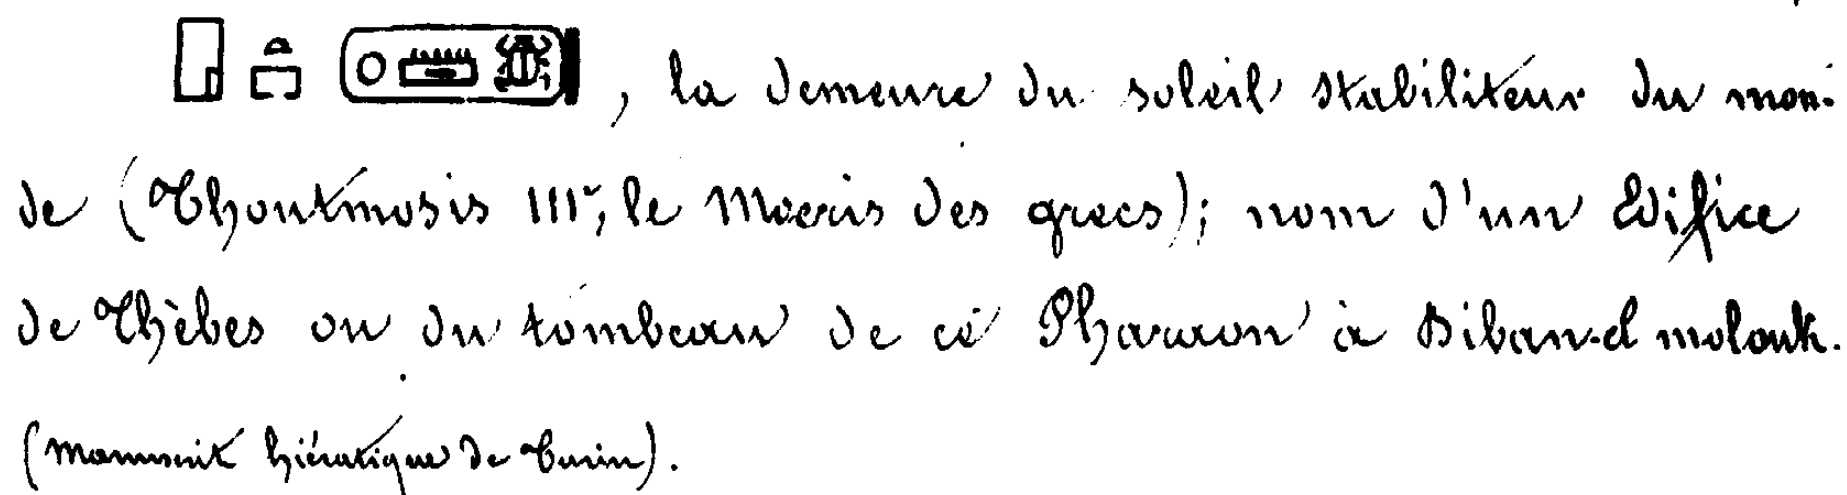 𓉗𓏏𓉐𓍹𓇳𓏠𓆣𓍺, la demeure du soleil stabiliteur du mon-
de (Thoutmosis IIIe, le Moeris des grecs); nom d'un Edifice
de Thèbes ou du tombeau de ce Pharaon à Biban-el molouk.
(Manuscrit hiératique de Turin).